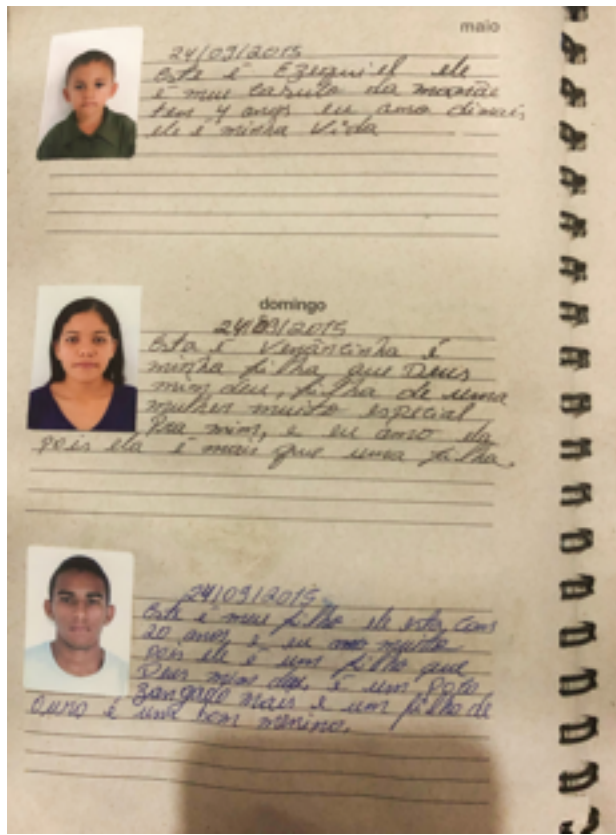 maio
24/09/2015
Este é Ezequiel ele
é meu casulo da mamãe
tem 4 anos eu amo dimais
ele é minha vida
domingo
24/09/2015
Esta é Venâncinha é
minha filha que Deus
mim deu, filha de uma
mulher muito especial
Pra mim, e eu amo da
pois ela é mais que uma filha.
24/09/2015
Este é meu filho ele esta com
20 anos e eu amo muito
pois ele é um filho que
Deus mim deu, é um poco
zangado mais é um filho de
Ouro é um bom menino.